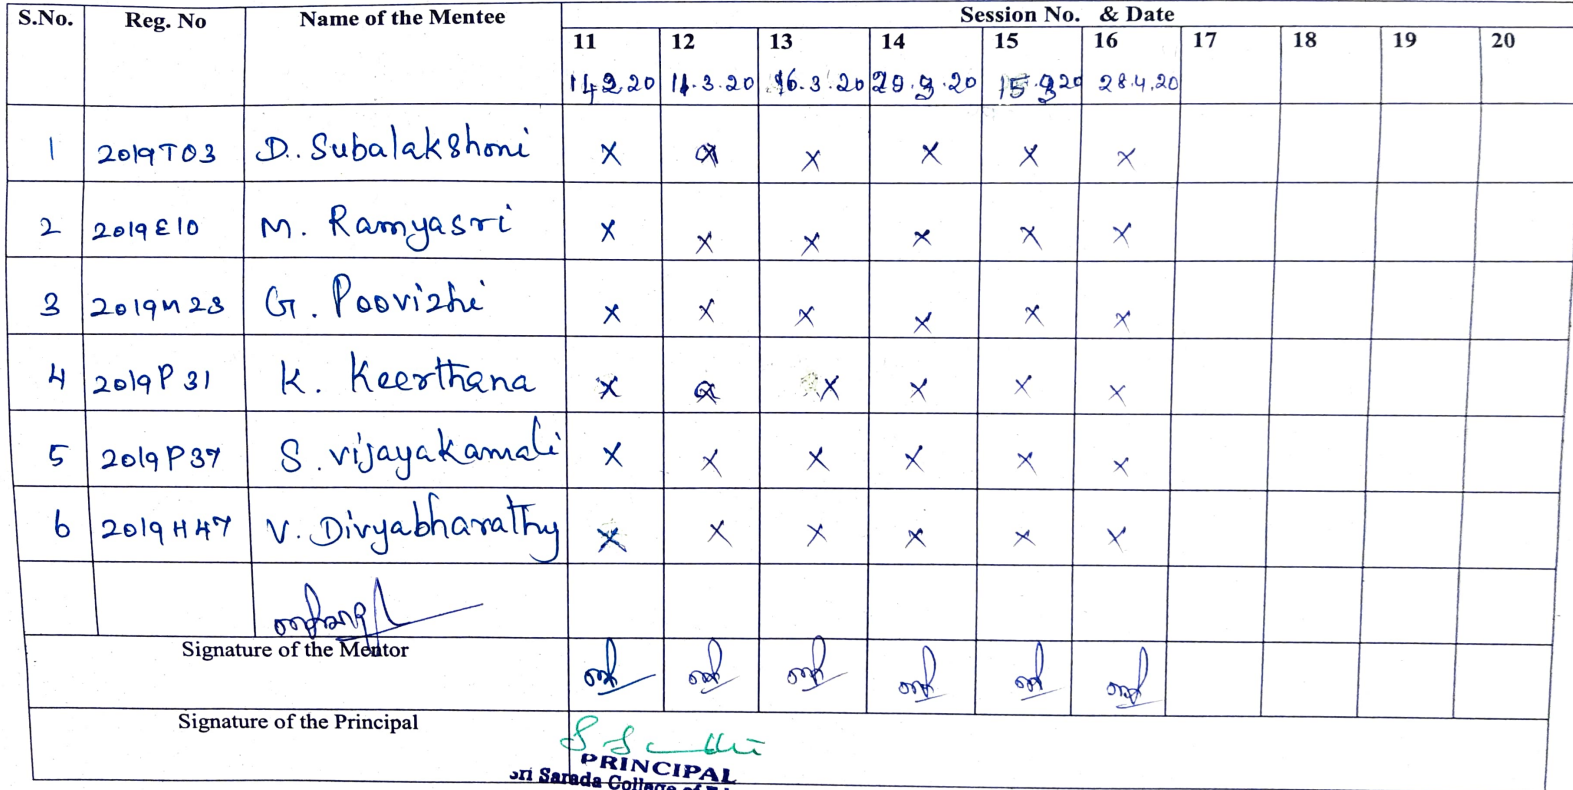 S.No. Reg. No Name of the Mentee Session No. & Date
11 12 13 14 15 16 17 18 19 20
14.2.20 11.3.20 16.3.20 28.4.20
1 2019T03 D. Subalakshoni x a x x x x
2 2019E10 M. Ramyasri x x x x x x
3 2019M23 G. Poovizhi x x x x x x
4 2019P31 K. Keerthana x a x x x x
5 2019P37 S. Vijayakamali x x x x x x
6 2019H47 V. Divyabharathy x x x x x x
Signature of the Mentor
Signature of the Principal
PRINCIPAL
Sri Sarada College of